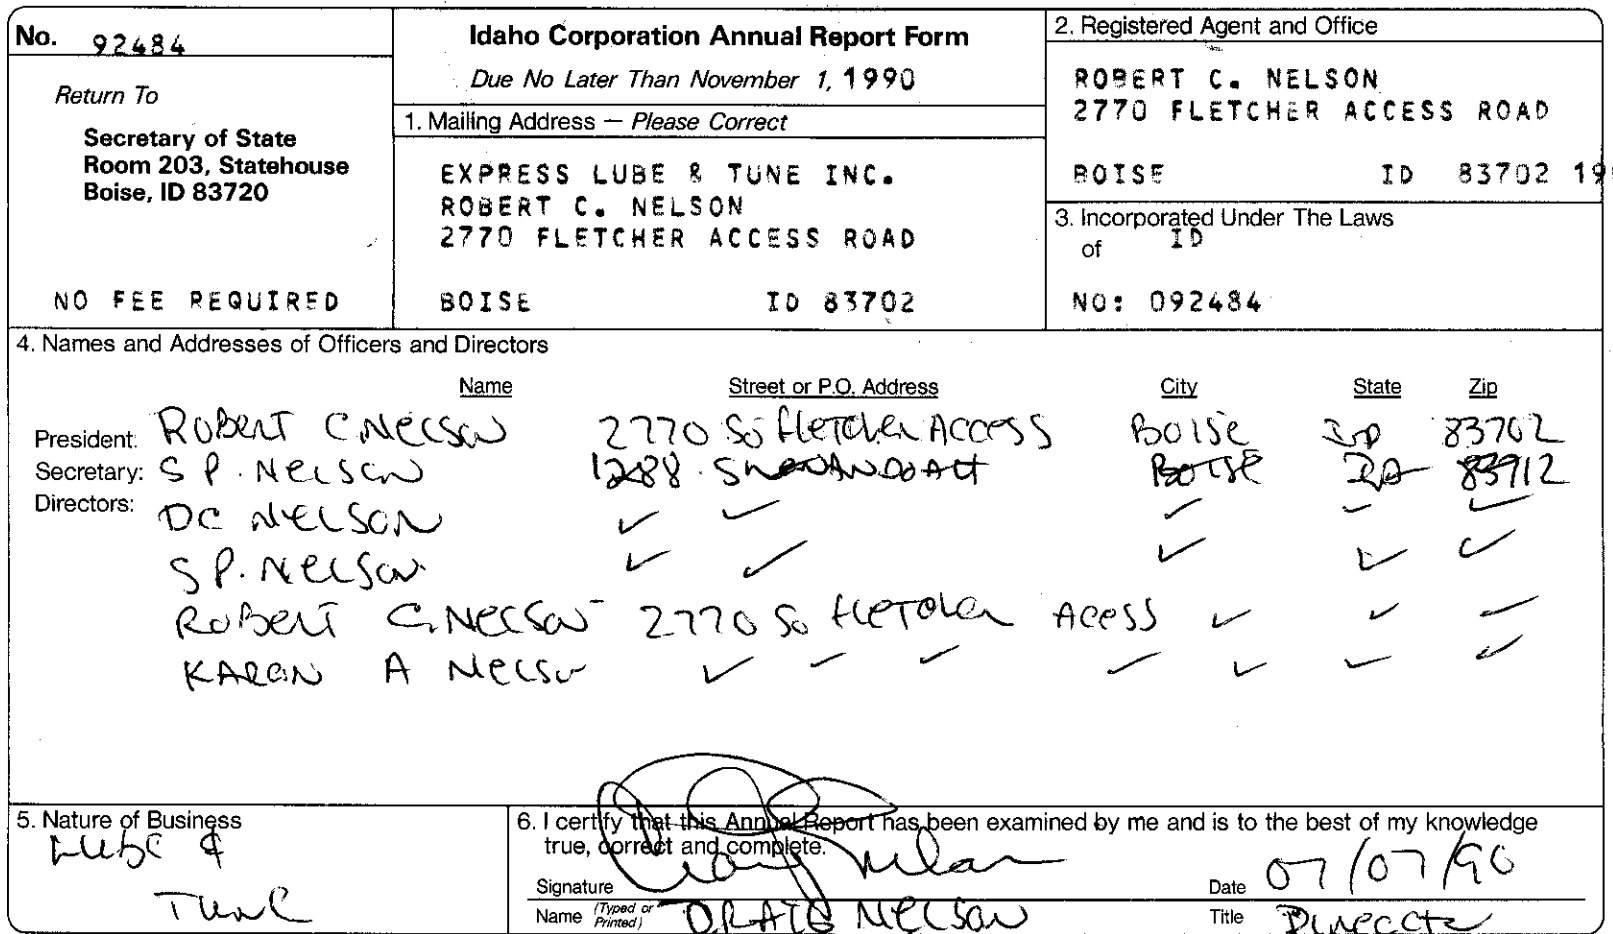 No. 92484
Return To
Secretary of State
Room 203, Statehouse
Boise, ID 83720
NO FEE REQUIRED
Idaho Corporation Annual Report Form
Due No Later Than November 1, 1990
1. Mailing Address — Please Correct
EXPRESS LUBE & TUNE INC.
ROBERT C. NELSON
2770 FLETCHER ACCESS ROAD
BOISE ID 83702
2. Registered Agent and Office
ROBERT C. NELSON
2770 FLETCHER ACCESS ROAD
BOISE ID 83702 19
3. Incorporated Under The Laws
of ID
NO: 092484
4. Names and Addresses of Officers and Directors
Name Street or P.O. Address City State Zip
President: ROBERT C. NELSON 2770 So FLETCHER ACCESS BOISE ID 83702
Secretary: S P. NELSON 1288 SHENANDOAH BOISE ID 83712
Directors: DC NELSON ✓ ✓ ✓ ✓ ✓
S P. NELSON ✓ ✓ ✓ ✓ ✓
ROBERT C. NELSON 2770 So FLETCHER ACESS ✓ ✓ ✓
KAREN A NELSON ✓ ✓ ✓ ✓ ✓ ✓ ✓
5. Nature of Business
Lube &
Tune
6. I certify that this Annual Report has been examined by me and is to the best of my knowledge
true, correct and complete.
Signature Date 07/07/90
Name (Typed or Printed) D. CRAIG NELSON Title DIRECTOR